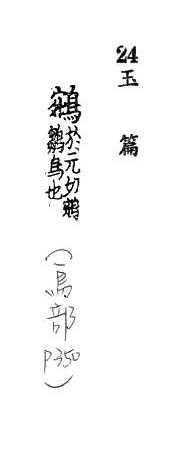 24 玉篇
鵷 於元切鵷
鶵鳥也
(鳥部 P350)